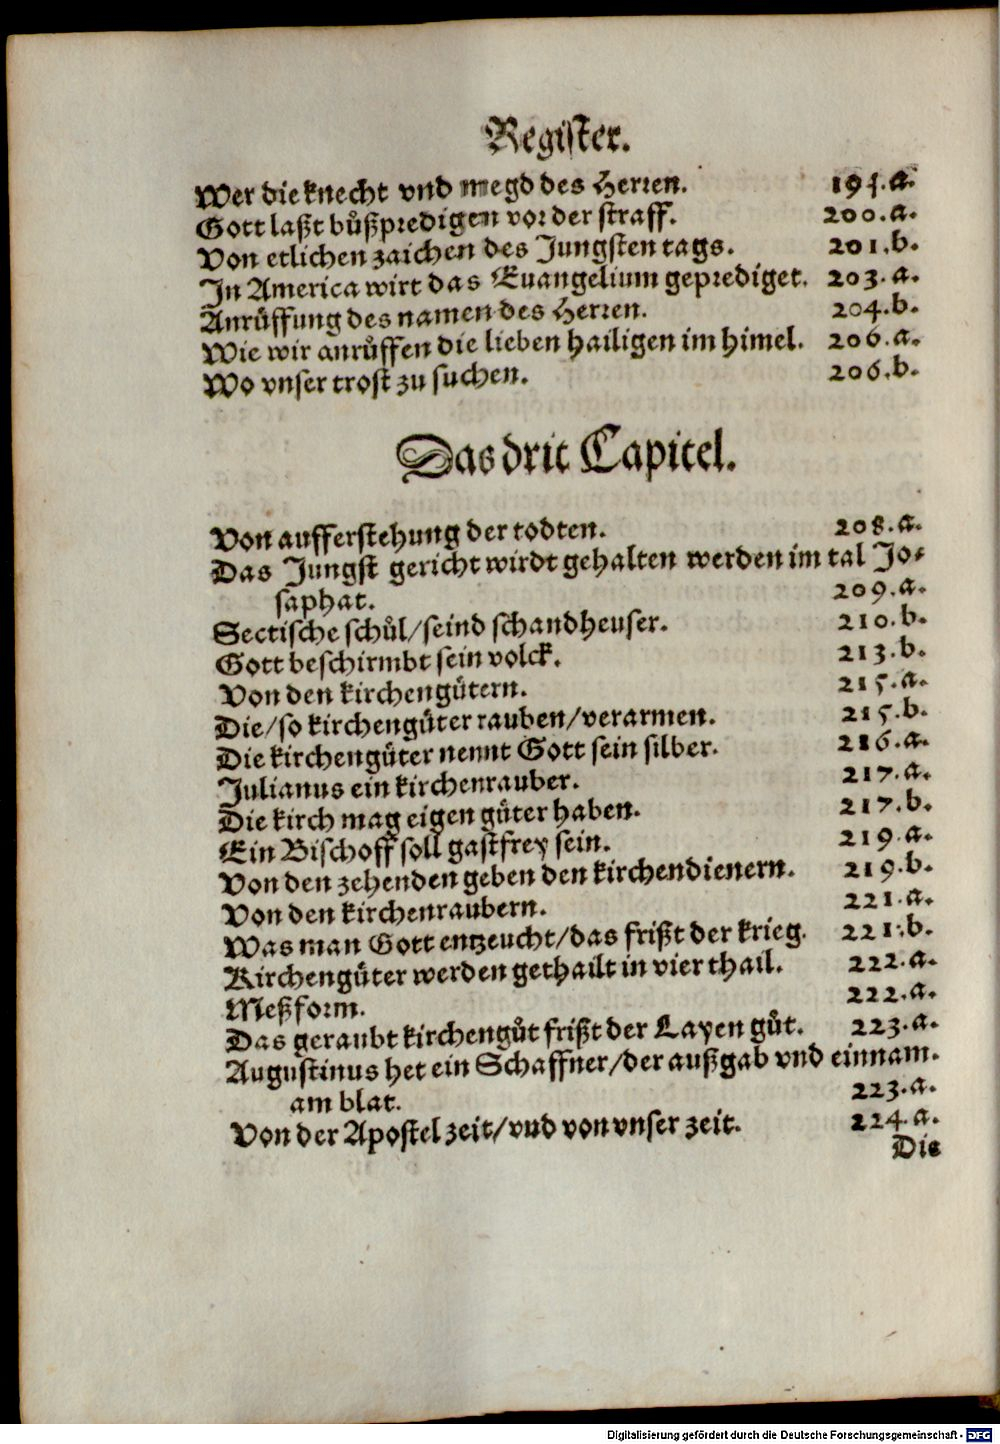 Register.
Wer die knecht vnd megd des Herren. 195.a.
Gott laßt bůßpredigen vor der straff. 200.a.
Von etlichen zaichen des Jungsten tags. 201.b.
In America wirt das Euangelium geprediget. 203.a.
Anrůffung des namen des Herren. 204.b.
Wie wir anrůffen die lieben hailigen im himel. 206.a.
Wo vnser trost zu suchen. 206.b.
Das drit Capitel.
Von aufferstehung der todten. 208.a.
Das Jungst gericht wirdt gehalten werden im tal Jo-
saphat. 209.a.
Sectische schůl/seind schandheuser. 210.b.
Gott beschirmbt sein volck. 213.b.
Von den kirchengütern. 215.a.
Die/so kirchengüter rauben/verarmen. 215.b.
Die kirchengüter nennt Gott sein silber. 216.a.
Julianus ein kirchenrauber. 217.a.
Die kirch mag eigen güter haben. 217.b.
Ein Bischoff soll gastfrey sein. 219.a.
Von den zehenden geben den kirchendienern. 219.b.
Von den kirchenraubern. 221.a.
Was man Gott entzeucht/das frißt der krieg. 221.b.
Kirchengüter werden gethailt in vier thail. 222.a.
Meßform. 222.a.
Das geraubt kirchengůt frißt der Layen gůt. 223.a.
Augustinus het ein Schaffner/der außgab vnd einnam.
am blat. 223.a.
Von der Apostel zeit/vnd von vnser zeit. 224.a.
Die
Digitalisierung gefördert durch die Deutsche Forschungsgemeinschaft - DFG